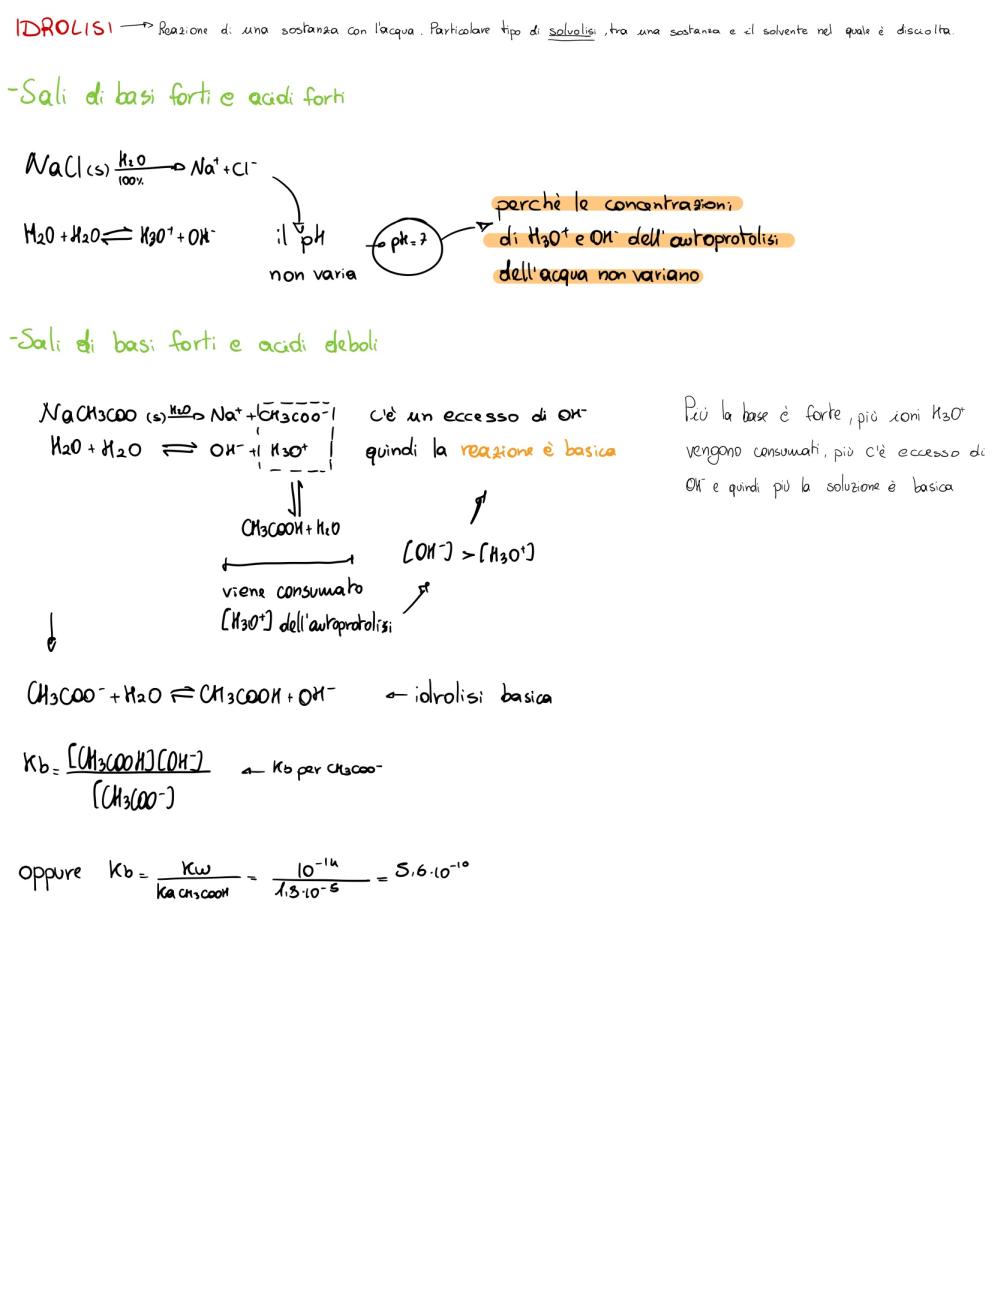 IDROLISI → Reazione di una sostanza con l'acqua. Particolare tipo di solvolisi, tra una sostanza e il solvente nel quale è disciolta.
-Sali di basi forti e acidi forti
NaCl(s) H2O 100% → Na⁺ + Cl⁻
H2O + H2O ⇌ H3O⁺ + OH⁻
il pH
non varia
→ pH=7
perchè le concentrazioni
di H3O⁺ e OH⁻ dell'autoprotolisi
dell'acqua non variano
-Sali di basi forti e acidi deboli
NaCH3COO (s) H2O → Na⁺ + CH3COO⁻
H2O + H2O ⇌ OH⁻ + H3O⁺
⇌
CH3COOH + H2O
viene consumato
[H3O⁺] dell'autoprotolisi
[OH⁻] > [H3O⁺]
c'è un eccesso di OH⁻
quindi la reazione è basica
Più la base è forte, più ioni H3O⁺
vengono consumati, più c'è eccesso di
OH⁻ e quindi più la soluzione è basica
CH3COO⁻ + H2O ⇌ CH3COOH + OH⁻ ← idrolisi basica
Kb = [CH3COOH][OH⁻] / [CH3COO⁻] ← Kb per CH3COO⁻
oppure Kb = Kw / Ka CH3COOH = 10⁻¹⁴ / 1,8·10⁻⁵ = 5,6·10⁻¹⁰